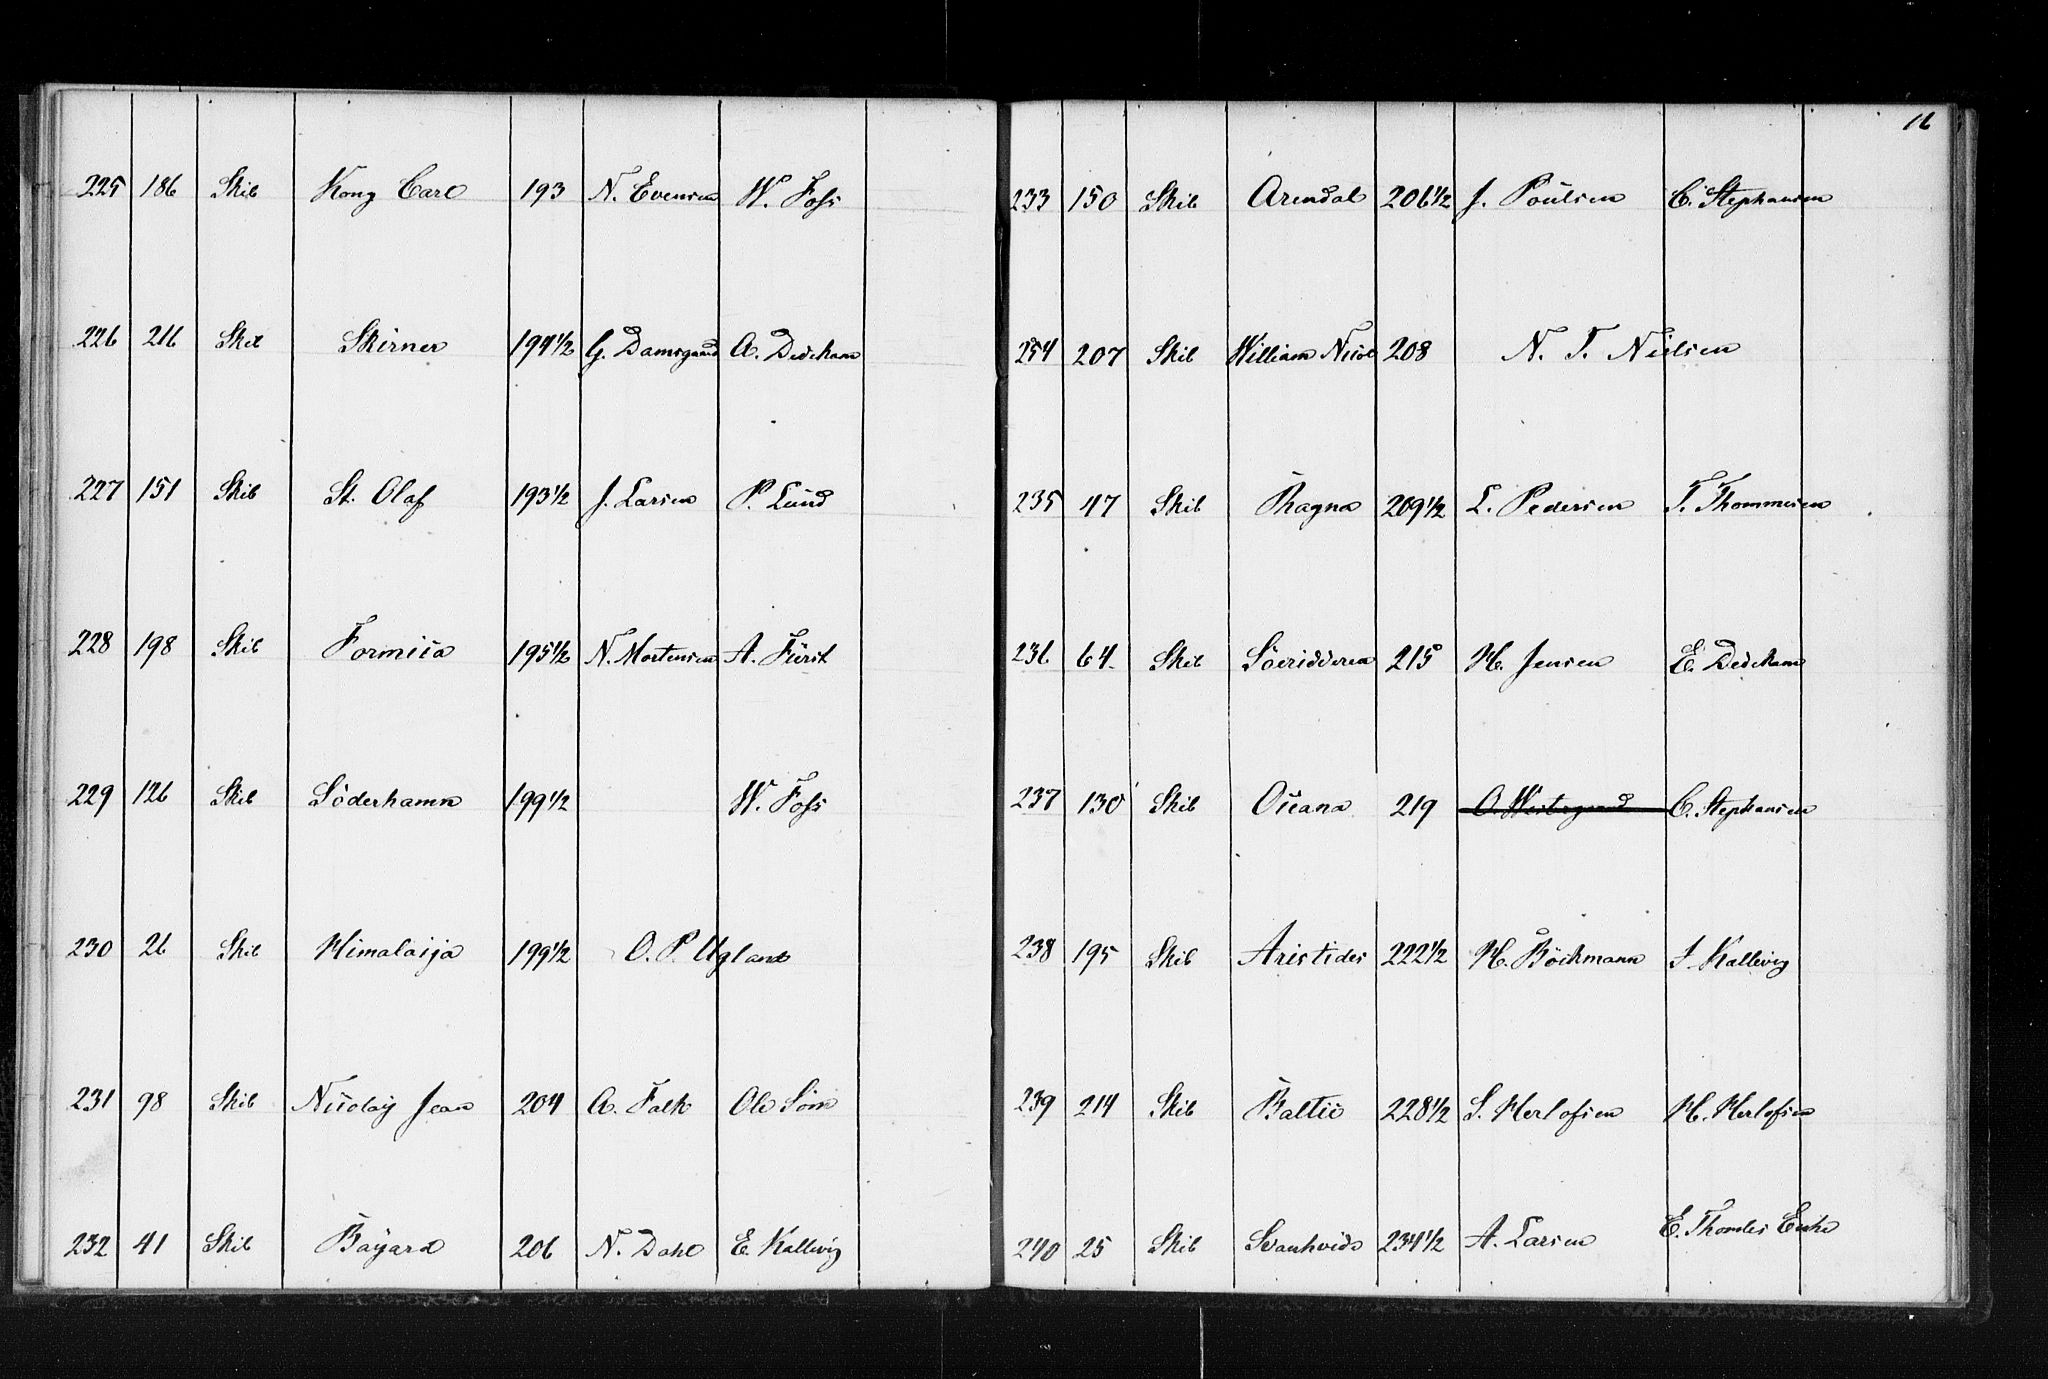 225 186 Skib Kong Carl 193 N. Evensen W. Foss
226 216 Skib Skirner 194 1/2 G. Damsgaard A. Dedekam
227 151 Skib St. Olaf 193 1/2 J. Larsen P. Lund
228 198 Skib Formica 195 1/2 N. Mortensen A. Fürst
229 126 Skib Söderhamn 199 1/2 W. Foss
230 26 Skib Himalaija 199 1/2 O. P. Ugland
231 98 Skib Nicolaÿ Jean 204 A. Falk Ole Söm
232 41 Skib Bayard 206 N. Dahl E. Kallevig
16
233 150 Skib Arendal 206 1/2 J. Poulsen C. Stephansen
234 207 Skib William Nicol 208 N. T. Nielsen
235 47 Skib Ragna 209 1/2 L. Pedersen T. Thommesen
236 64 Skib Söeridderen 215 H. Jensen E. Dedekam
237 130 Skib Oceana 219 O. Westergaard C. Stephansen
238 195 Skib Aristides 222 1/2 H. Böckmann S. Kallevig
239 214 Skib Baltic 228 1/2 S. Herlofsen H. Herlofsen
240 25 Skib Svanhvide 234 1/2 A. Larsen E. Thomles